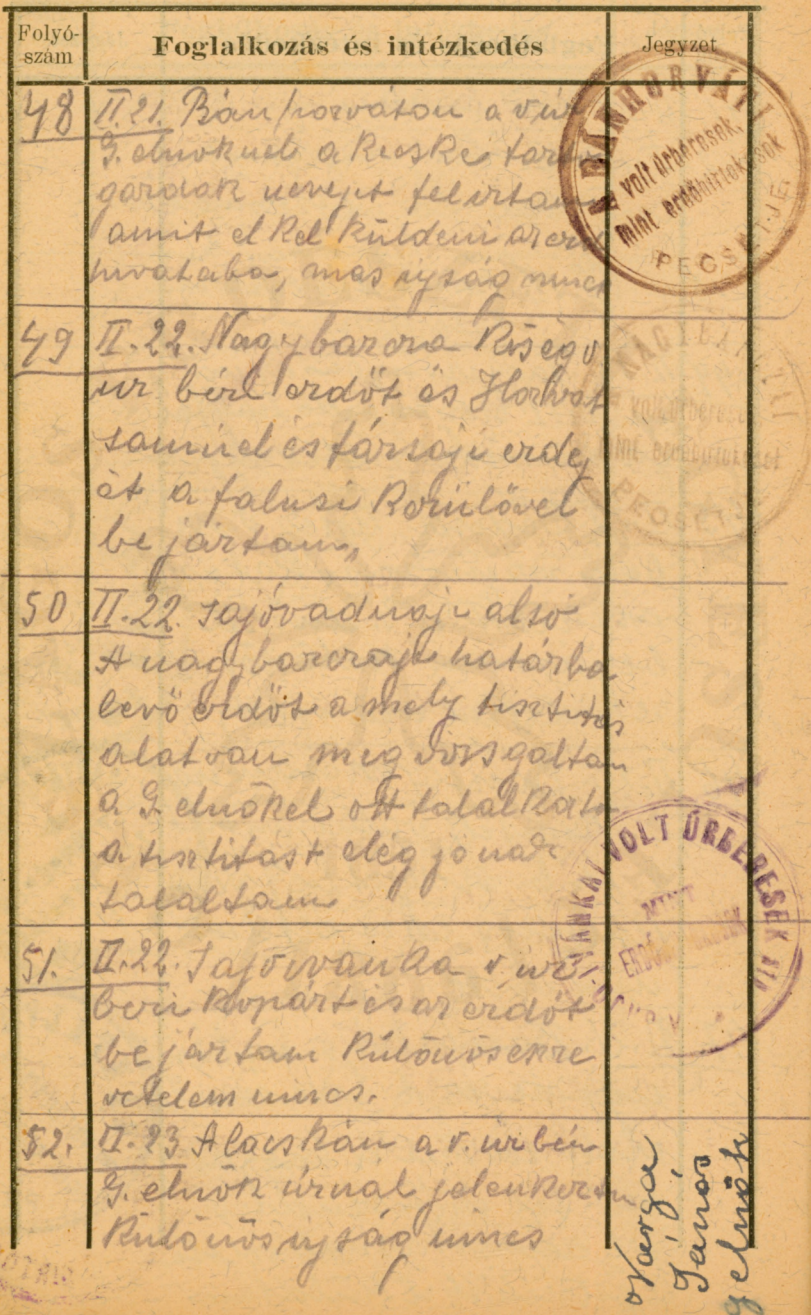 Folyó-
szám
Foglalkozás és intézkedés
Jegyzet
48 II 21. Bánhorváton a v úr
G. elnöknél a kecske
gardak nevejet felirtam
amit el kel küldeni az
hivataba, mas ujság nincs
A BÁNHORVÁTI
volt úrbéresek,
mint erdőbirtokosok
PECSÉTJE
49 II. 22. Nagybarca
ur béri erdőt és Horvat
samuel és társaji erdej
ét a falusi kerülővel
be jártam,,
volt úrbéresek
mint
PECSÉTJE
50 II. 22. sajóvadnaji alsó
A nagybarcaji határba
levő erdőt a mely tisztitás
alat van meg vizsgáltam
a G. elnökel ott talalkozta
a tisztitást elég jonak
talaltam
VOLT ÚRBÉRESEK
MINT
51. II. 22. Sajóivánka v. úr
béri kopárt és az erdőt
be jártam külőnős eszre
vetelem nincs.
52. II. 23 Alacskán a v. úrbéri
G. elnők úrnál jelenkeztem
Külőnős ujság nincs
Varga
János
elnök